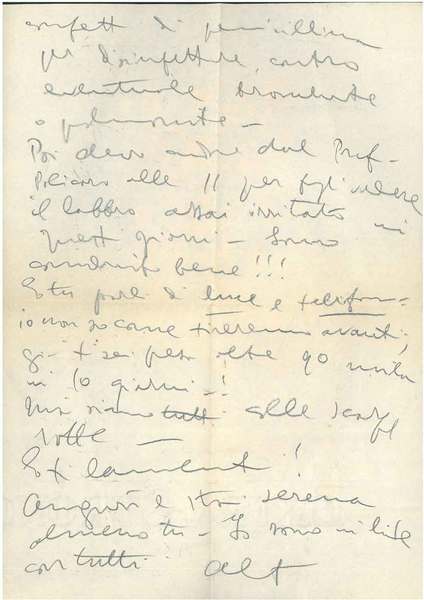 confetti di penicillina
per disinfettare, contro
eventuale bronchite
o polmonite –
Poi devo andare dal Prof –
alle 11 per fargli vedere
il labbro assai irritato in
questi giorni – Sono
bene!!!
E tu parli di luce e telefon –
io non so come tireremo avanti,
già ti sei preso oltre 90 mila
in 10 giorni – !
Noi siamo tutti alle scarpe
rotte –
E ti lamenti!
Auguri e stai serena
almeno tu – Io sono in lite
con tutti